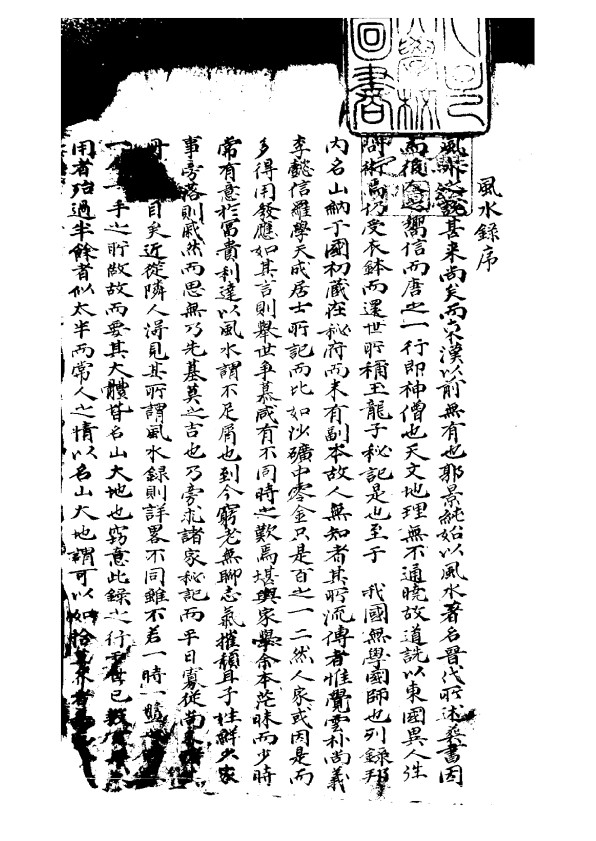 風水錄序
風水之說甚來尚矣而東漢以前無有也郭景純始以風水著名晉代所述葬書因
而後人之嚮信而唐之一行即神僧也天文地理無不通曉故道詵以東國異人往
術焉乃受衣鉢而還世所稱玉龍子秘記是也至于 我國無學國師也列錄邦
內名山納于國初藏在秘府而未有副本故人無知者其所流傳者惟覺雲朴尚義
李懿信羅學天成居士所記而比如沙礦中零金只是百之一二然人家或因是而
多得用發應如其言則舉世爭慕咸有不同時之歎焉堪輿家學余本茫昧而少時
常有意於富貴利達以風水謂不足屑也到今窮老無聊志氣摧頹且子姓鮮少家
事旁落則戚然而思無乃先墓葬之吉也乃旁求諸家秘記而平日
目矣近從隣人得見其所謂風水錄則詳畧不同雖不若一時一
一手之所做故而要其大體皆名山大地也竊意此錄之行于世已
用者殆過半餘者似太半而常人之情以名山大地謂可以如拾